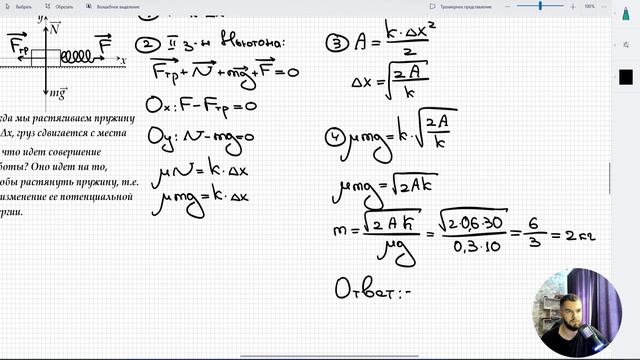 Выбрать
Скрыть
Обновить
Выделение волшебное
Трехмерное представление
100%
y
N
Fтр
F
x
mg
гда мы растягиваем пружину
Δx, груз сдвигается с места
что идет совершение
боты? Оно идет на то,
обы растянуть пружину, т.е.
изменение ее потенциальной
ергии.
② II з-н Ньютона:
Fтр + N + mg + F = 0
Ox: F - Fтр = 0
Oy: N - mg = 0
μN = k · Δx
μmg = k · Δx
③ A = k · Δx² / 2
Δx = √(2A / k)
④ μmg = k · √(2A / k)
μmg = √2Ak
m = √2Ak / μg = √2·0,6·30 / 0,3·10 = 6 / 3 = 2 кг
Ответ:-